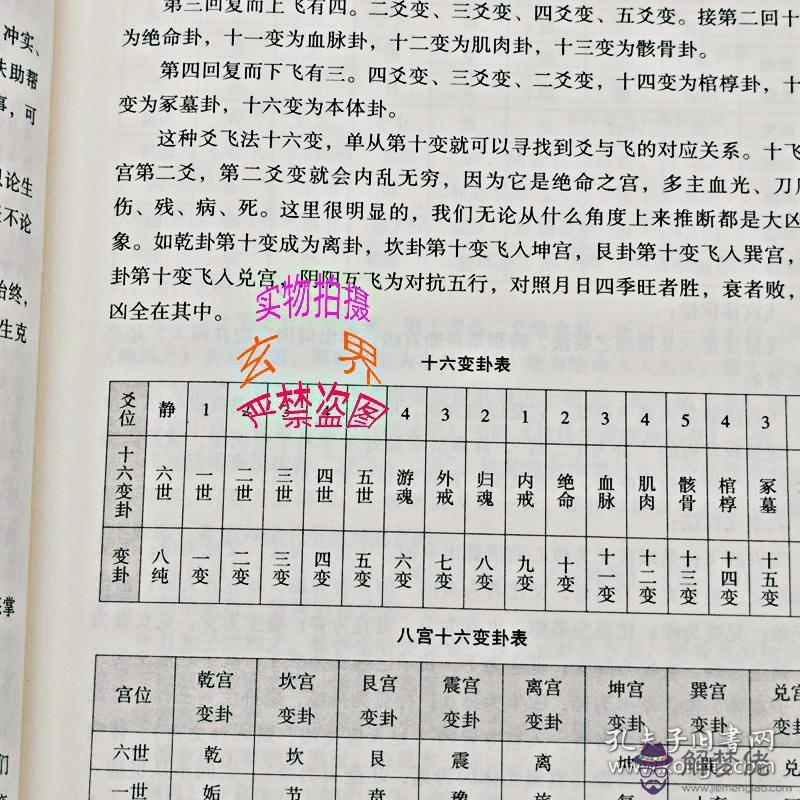 冲实、
扶助帮
事，可
论生
不论
始终，
生克
掌
们
第三回复而上飞有四。二爻变、三爻变、四爻变、五爻变。接第二回十
为绝命卦，十一变为血脉卦，十二变为肌肉卦，十三变为骸骨卦。
第四回复而下飞有三。四爻变、三爻变、二爻变，十四变为棺椁卦，十
变为冢墓卦，十六变为本体卦。
这种爻飞法十六变，单从第十变就可以寻找到爻与飞的对应关系。十飞
宫第二爻，第二爻变就会内乱无穷，因为它是绝命之宫，多主血光、刀
伤、残、病、死。这里很明显的，我们无论从什么角度上来推断都是大凶
象。如乾卦第十变成为离卦，坎卦第十变飞人坤宫，艮卦第十变飞人巽宫，
卦第十变飞人兑宫，阴阳互飞为对抗五行，对照月日四季旺者胜，衰者败，
凶全在其中。
实物拍摄
玄 界
严禁盗图
十六变卦表
爻位 静 1 2 3 4 4 3 2 1 2 3 4 5 4 3
十六变卦 六世 一世 二世 三世 四世 五世 游魂 外戒 归魂 内戒 绝命 血脉 肌肉 骸骨 棺椁 冢墓
变卦 八纯 一变 二变 三变 四变 五变 六变 七变 八变 九变 十变 十一变 十二变 十三变 十四变 十五变
八宫十六变卦表
宫位 乾宫变卦 坎宫变卦 艮宫变卦 震宫变卦 离宫变卦 坤宫变卦 巽宫变卦 兑宫变卦
六世 乾 坎 艮 震 离 坤 兑
一世 姤 节 贲 豫 旅 复
孔夫子旧书网
解梦佬
www.jiemenglao.com